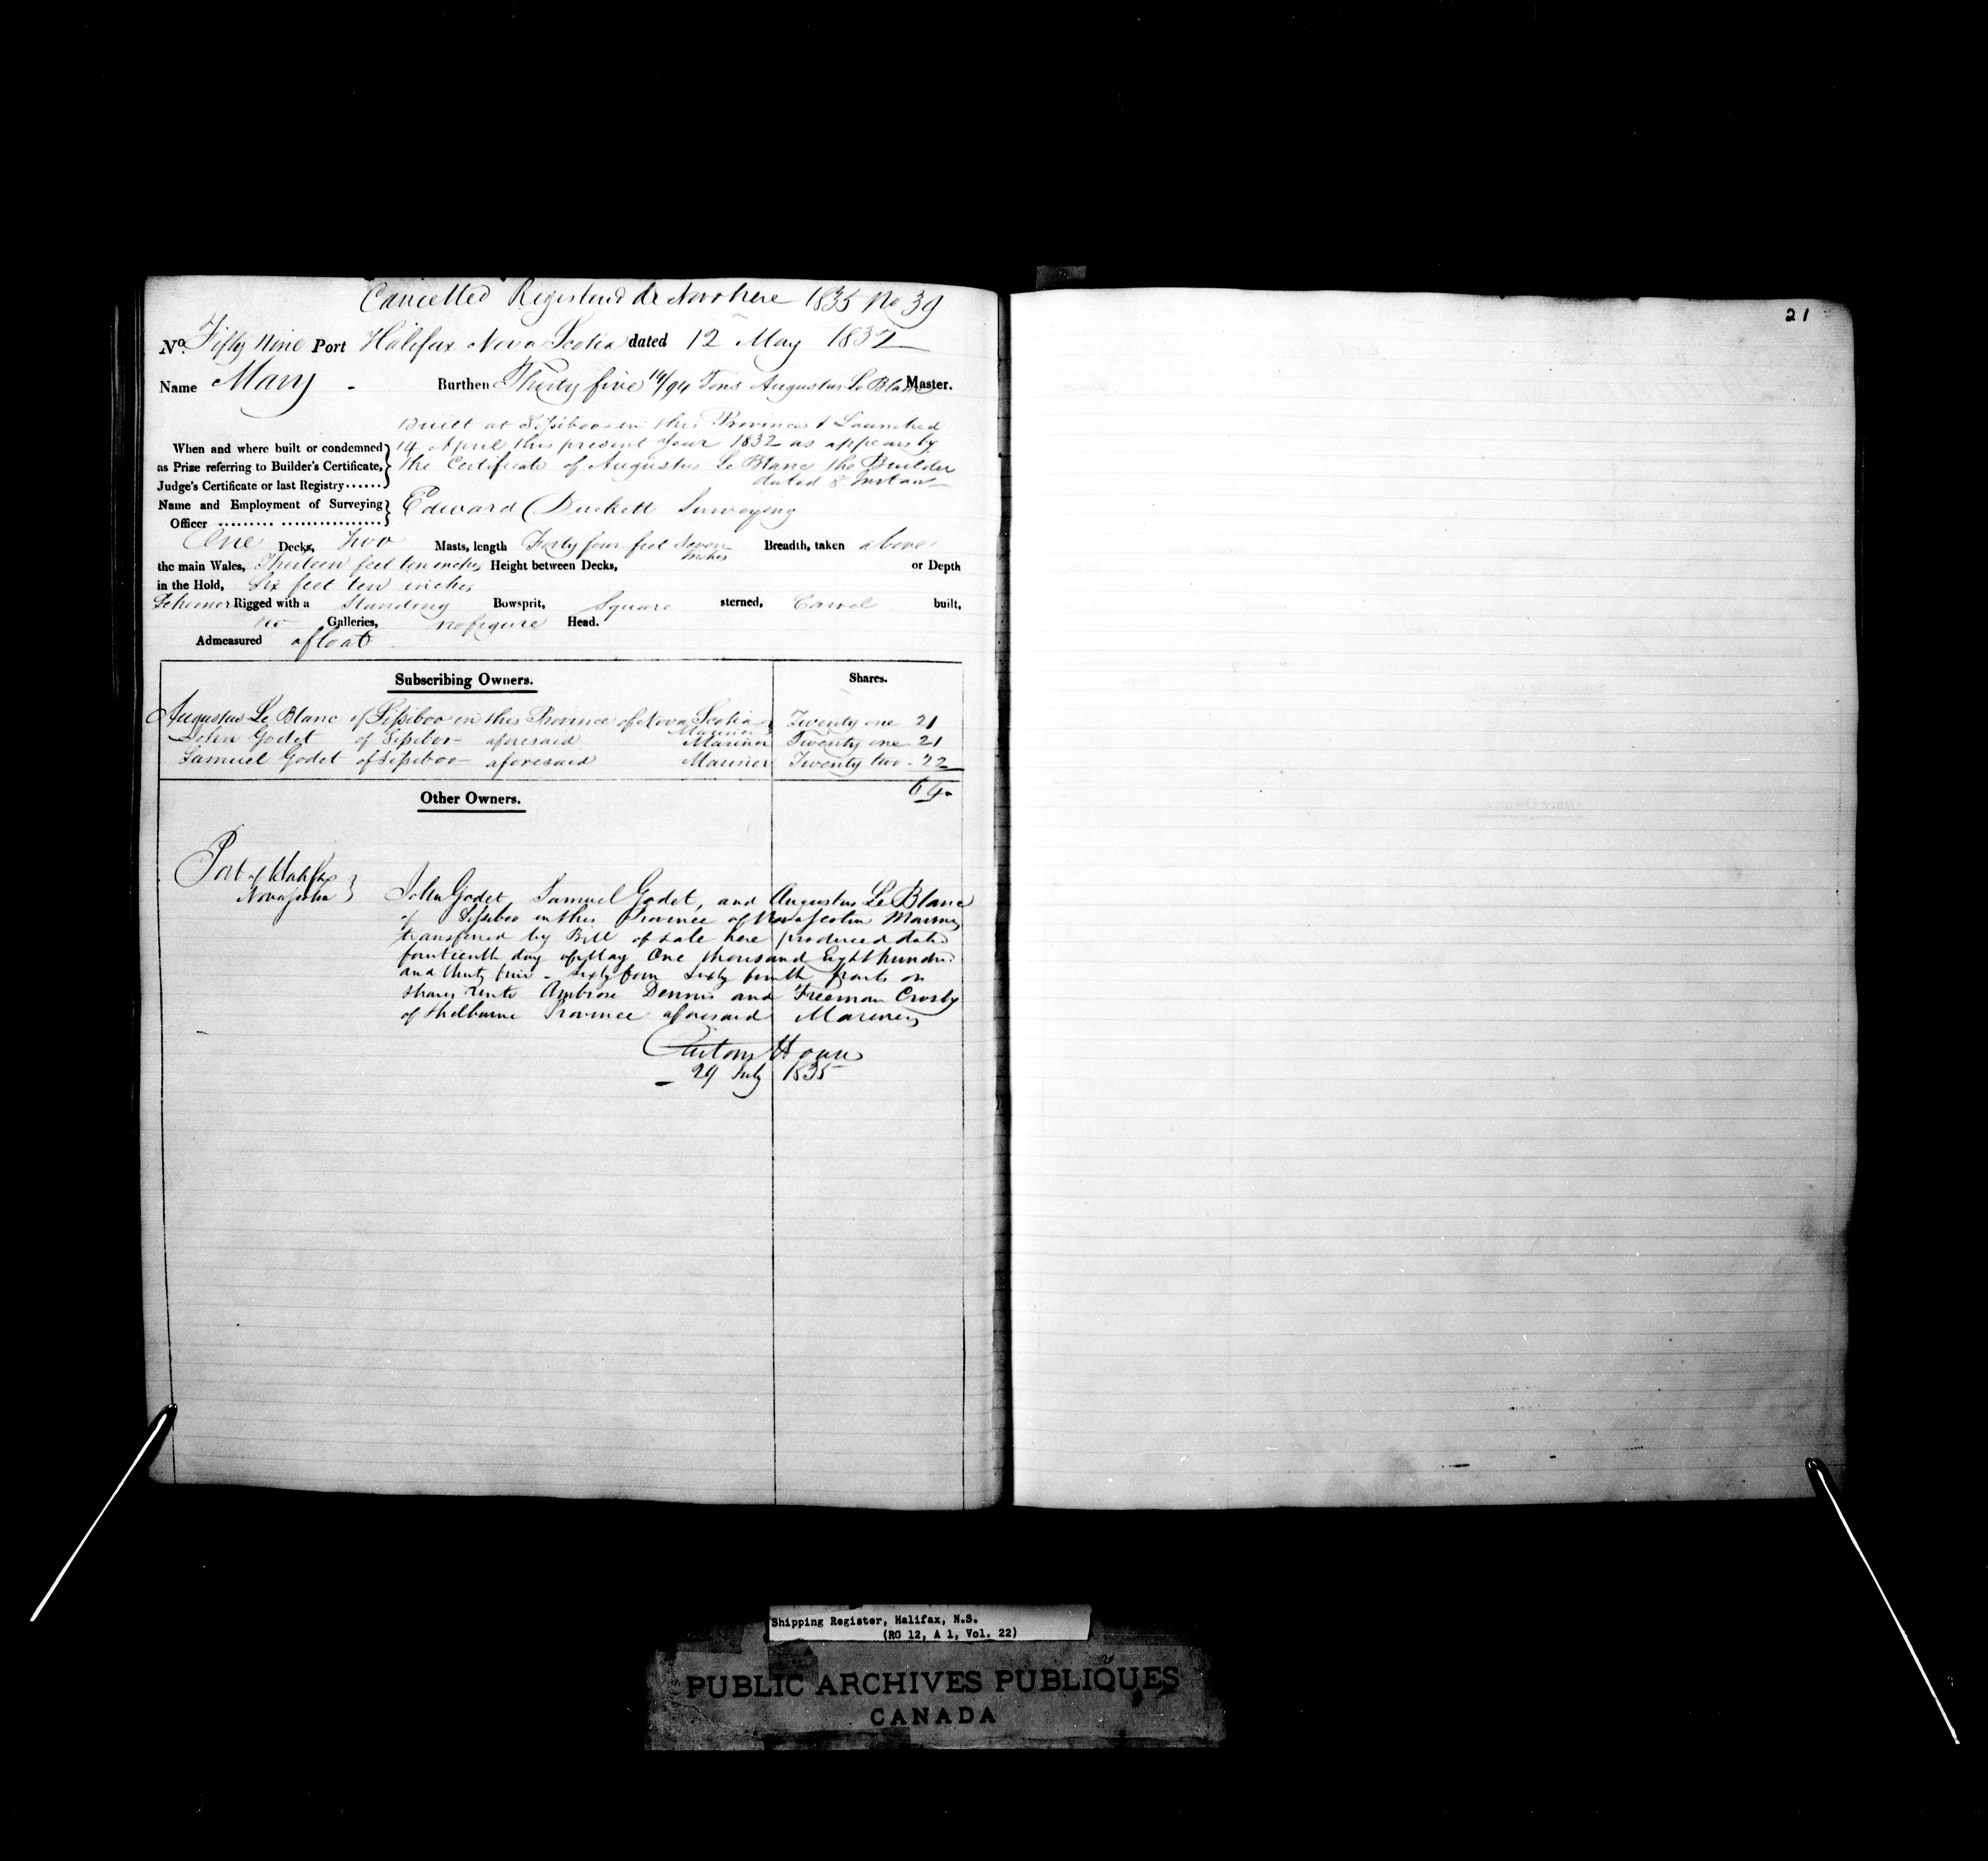 Cancelled Registered de Novo here 1835 No 39
No. Fifty Nine Port Halifax Nova Scotia dated 12 May 1832
Name Mary - Burthen Thirty five 14/94 Tons Augustus Le Blanc Master.
Built at Sissiboo in this Province & Launched
When and where built or condemned 14 April this present Year 1832 as appears by
as Prize referring to Builder's Certificate, the Certificate of Augustus Le Blanc the Builder
Judge's Certificate or last Registry...... dated 8 Instant
Name and Employment of Surveying Edward Duckett Surveying
Officer ......... ................
One Decks, Two Masts, length Forty four feet Seven inches Breadth, taken above
the main Wales, Thirteen feet ten inches Height between Decks, or Depth
in the Hold, Six feet ten inches
Schooner Rigged with a Standing Bowsprit, Square sterned, Carvel built,
no Galleries, no figure Head.
Admeasured afloat
Subscribing Owners. Shares.
Augustus Le Blanc of Sissiboo in this Province of Nova Scotia Mariner Twenty one 21
John Godet of Sissiboo aforesaid Mariner Twenty one 21
Samuel Godet of Sissiboo aforesaid Mariner Twenty two - 22
64
Other Owners.
Port of Halifax
Nova Scotia
John Godet, Samuel Godet, and Augustus Le Blanc
of Sissiboo in this Province of Nova Scotia Mariners
transferred by Bill of Sale here produced dated
fourteenth day of May One thousand Eight hundred
and thirty five - Sixty four Sixty fourth parts or
shares unto Ambrose Dennis and Freeman Crosby
of Shelburne Province aforesaid Mariners
Custom House
29 July 1835
21
Shipping Register, Halifax, N.S.
(RG 12, A 1, Vol. 22)
PUBLIC ARCHIVES PUBLIQUES
CANADA